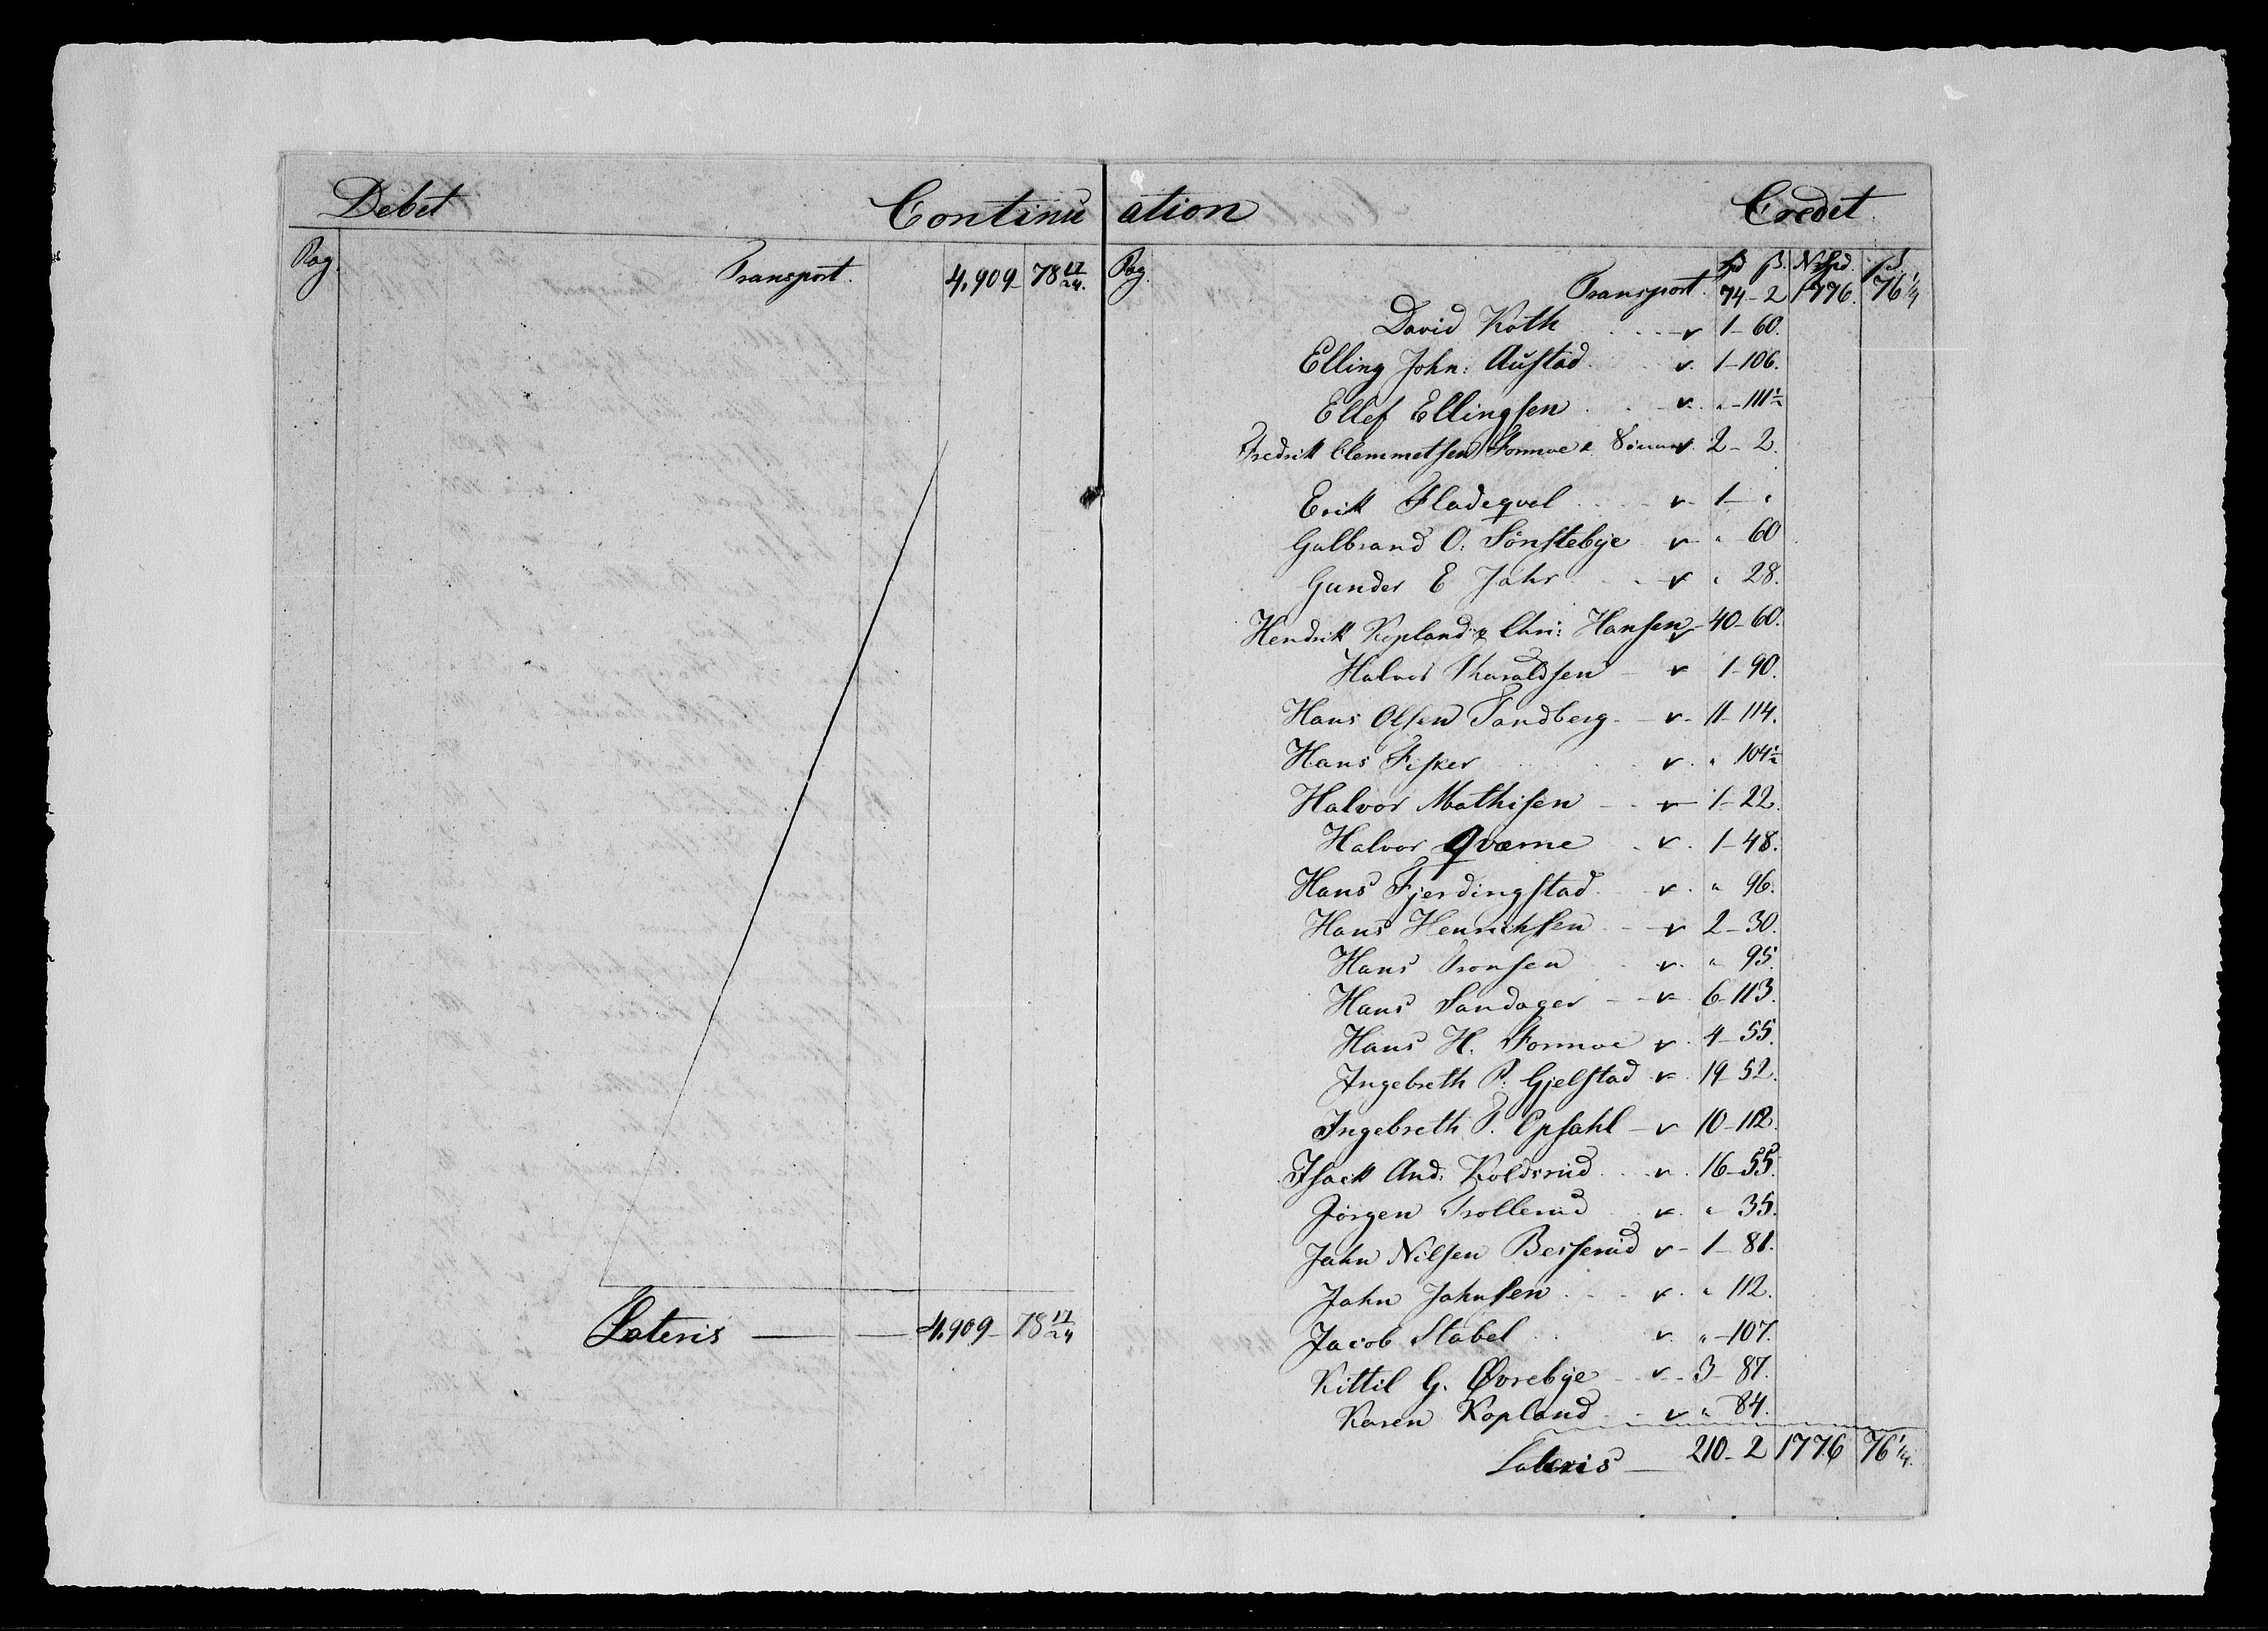 Debet Continu ation Credet
Pag. Transport. 4,909 78 17/24.
Lateris 4,909 78 17/24
Pag. Spd. β. N. Spd. β.
Transport. 74-2 1776. 76 1/4
David Koth v 1-60.
Elling John: Austad v. 1-106.
Ellef Ellingsen v. "-111 1/2
Fredrik Clemmetsen Formoe & v 2-2.
Erik Fladeqvel v 1-"
Gulbrand O: Sönstebye v " 60
Gunder E Jahr v " 28.
Hendrik Kopland & Chri: Hansen v 40-60.
Halvor Tharaldsen v 1-90.
Hans Olsen Sandberg v 11-114.
Hans Fisker v. " 104 1/2
Halvor Mathisen v 1-22.
Halvor Qværne v. 1-48.
Hans Fjerdingstad v. " 96.
Hans Henrichsen v 2-30.
Hans Tronsen v. " 95.
Hans Sandager v 6-113.
Hans H. Formoe v. 4-55.
Ingebreth P. Gjelstad v. 19-52.
Ingebreth P. Opsahl v 10-112.
Isack And: Koldsrud v. 16-55.
Jörgen Trollerud v. " 35.
Jahn Nilsen Besserud v 1-81.
Jahn Jahnsen v. " 112.
Jacob Stabel v. "-107.
Kittil G. Øvrebye v 3-87.
Karen Kopland v " 84.
Lateris 210-2 1776 76 1/4.